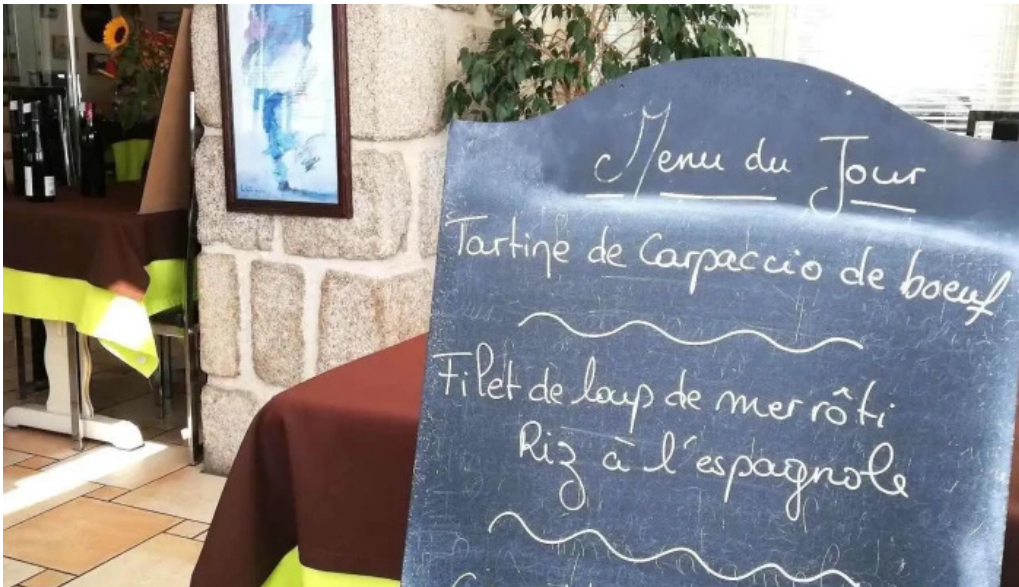 Menu du Jour
Tartine de Carpaccio de boeuf
Filet de loup de mer rôti
Riz à l'espagnole